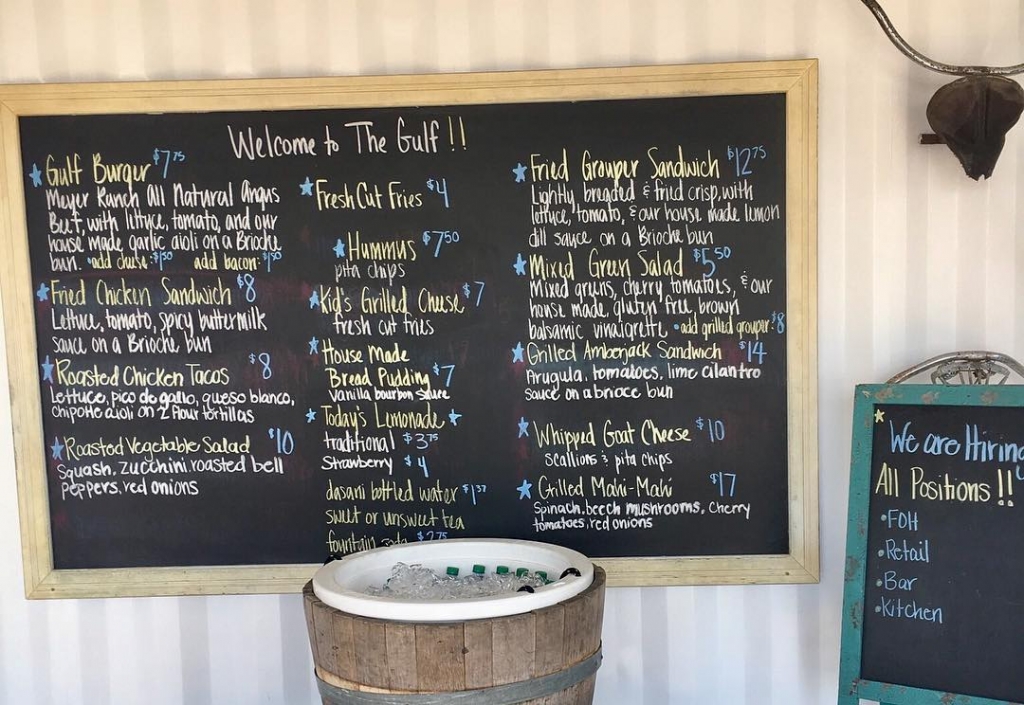 Welcome to The Gulf!!
Gulf Burger $7.75
Meyer Ranch All Natural Angus
Beef, with lettuce, tomato, and our
house made garlic aioli on a Brioche
bun. •add cheese: $1.50 add bacon: $1.50
Fried Chicken Sandwich $8
Lettuce, tomato, spicy buttermilk
sauce on a Brioche bun
Roasted Chicken Tacos $8
Lettuce, pico de gallo, queso blanco,
chipotle aioli on 2 flour tortillas
Roasted Vegetable Salad $10
Squash, zucchini, roasted bell
peppers, red onions
Fresh Cut Fries $4
Hummus $7.50
pita chips
Kid's Grilled Cheese $7
fresh cut fries
House Made
Bread Pudding $7
Vanilla bourbon sauce
Today's Lemonade
traditional $3.75
Strawberry $4
dasani bottled water $1.37
sweet or unsweet tea
fountain soda $2.75
Fried Grouper Sandwich $12.75
Lightly breaded & fried crisp, with
lettuce, tomato, & our house made lemon
dill sauce on a Brioche bun
Mixed Green Salad $5.50
Mixed greens, cherry tomatoes, & our
house made, gluten free brown
balsamic vinaigrette •add grilled grouper: $8
Grilled Amberjack Sandwich $14
Arugula, tomatoes, lime cilantro
sauce on a brioce bun
Whipped Goat Cheese $10
scallions & pita chips
Grilled Mahi-Mahi $17
Spinach, beech mushrooms, Cherry
tomatoes, red onions
We are Hiring
All Positions!!
•FOH
•Retail
•Bar
•Kitchen